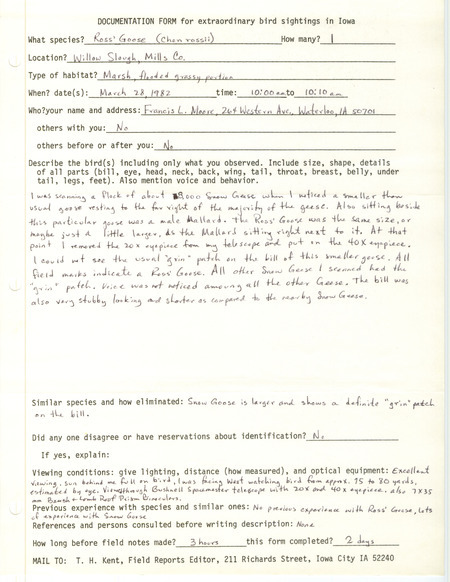 DOCUMENTATION FORM for extraordinary bird sightings in Iowa
What species? Ross' Goose (Chen rossii) How many? 1
Location? Willow Slough, Mills Co.
Type of habitat? Marsh, flooded grassy portion
When? date(s): March 28, 1982 time: 10:00am to 10:10am
Who?your name and address: Francis L. Moore, 264 Western Ave., Waterloo, IA 50701
others with you: No
others before or after you: No
Describe the bird(s) including only what you observed. Include size, shape, details
of all parts (bill, eye, head, neck, back, wing, tail, throat, breast, belly, under
tail, legs, feet). Also mention voice and behavior.
I was scanning a flock of about 8,000 Snow Geese when I noticed a smaller then
usual goose resting to the far right of the majority of the geese. Also sitting beside
this particular goose was a male Mallard. The Ross' Goose was the same size, or
maybe just a little larger, as the Mallard sitting right next to it. At that
point I removed the 20X eyepiece from my telescope and put on the 40X eyepiece.
I could not see the usual "grin" patch on the bill of this smaller goose. All
field marks indicate a Ross' Goose. All other Snow Geese I scanned had the
"grin" patch. Voice was not noticed amoung all the other Geese. The bill was
also very stubby looking and shorter as compared to the nearby Snow Geese.
Similar species and how eliminated: Snow Goose is larger and shows a definite "grin" patch
on the bill.
Did any one disagree or have reservations about identification? No
If yes, explain:
Viewing conditions: give lighting, distance (how measured), and optical equipment: Excellent
viewing, sun behind me full on bird, I was facing West watching bird from approx. 75 to 80 yards,
estimated by eye. Viewed through Bushnell Spacemaster telescope with 20X and 40X eyepiece. also 7X35
Baush + Lomb Roof Prism Binoculars.
Previous experience with species and similar ones: No previous experience with Ross' Goose, lots
of experience with Snow Goose
References and persons consulted before writing description: None
How long before field notes made? 3 hours this form completed? 2 days
MAIL TO: T. H. Kent, Field Reports Editor, 211 Richards Street, Iowa City IA 52240